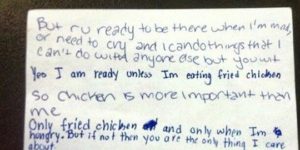 But r u ready to be there when I'm mad
or need to cry and I can do things that I
can't do with anyone else but you
Yes I am ready unless Im eating fried chicken
So chicken is more important than
me
Only fried chicken and only when Im
hungry. But if not then you are the only thing I care
about.